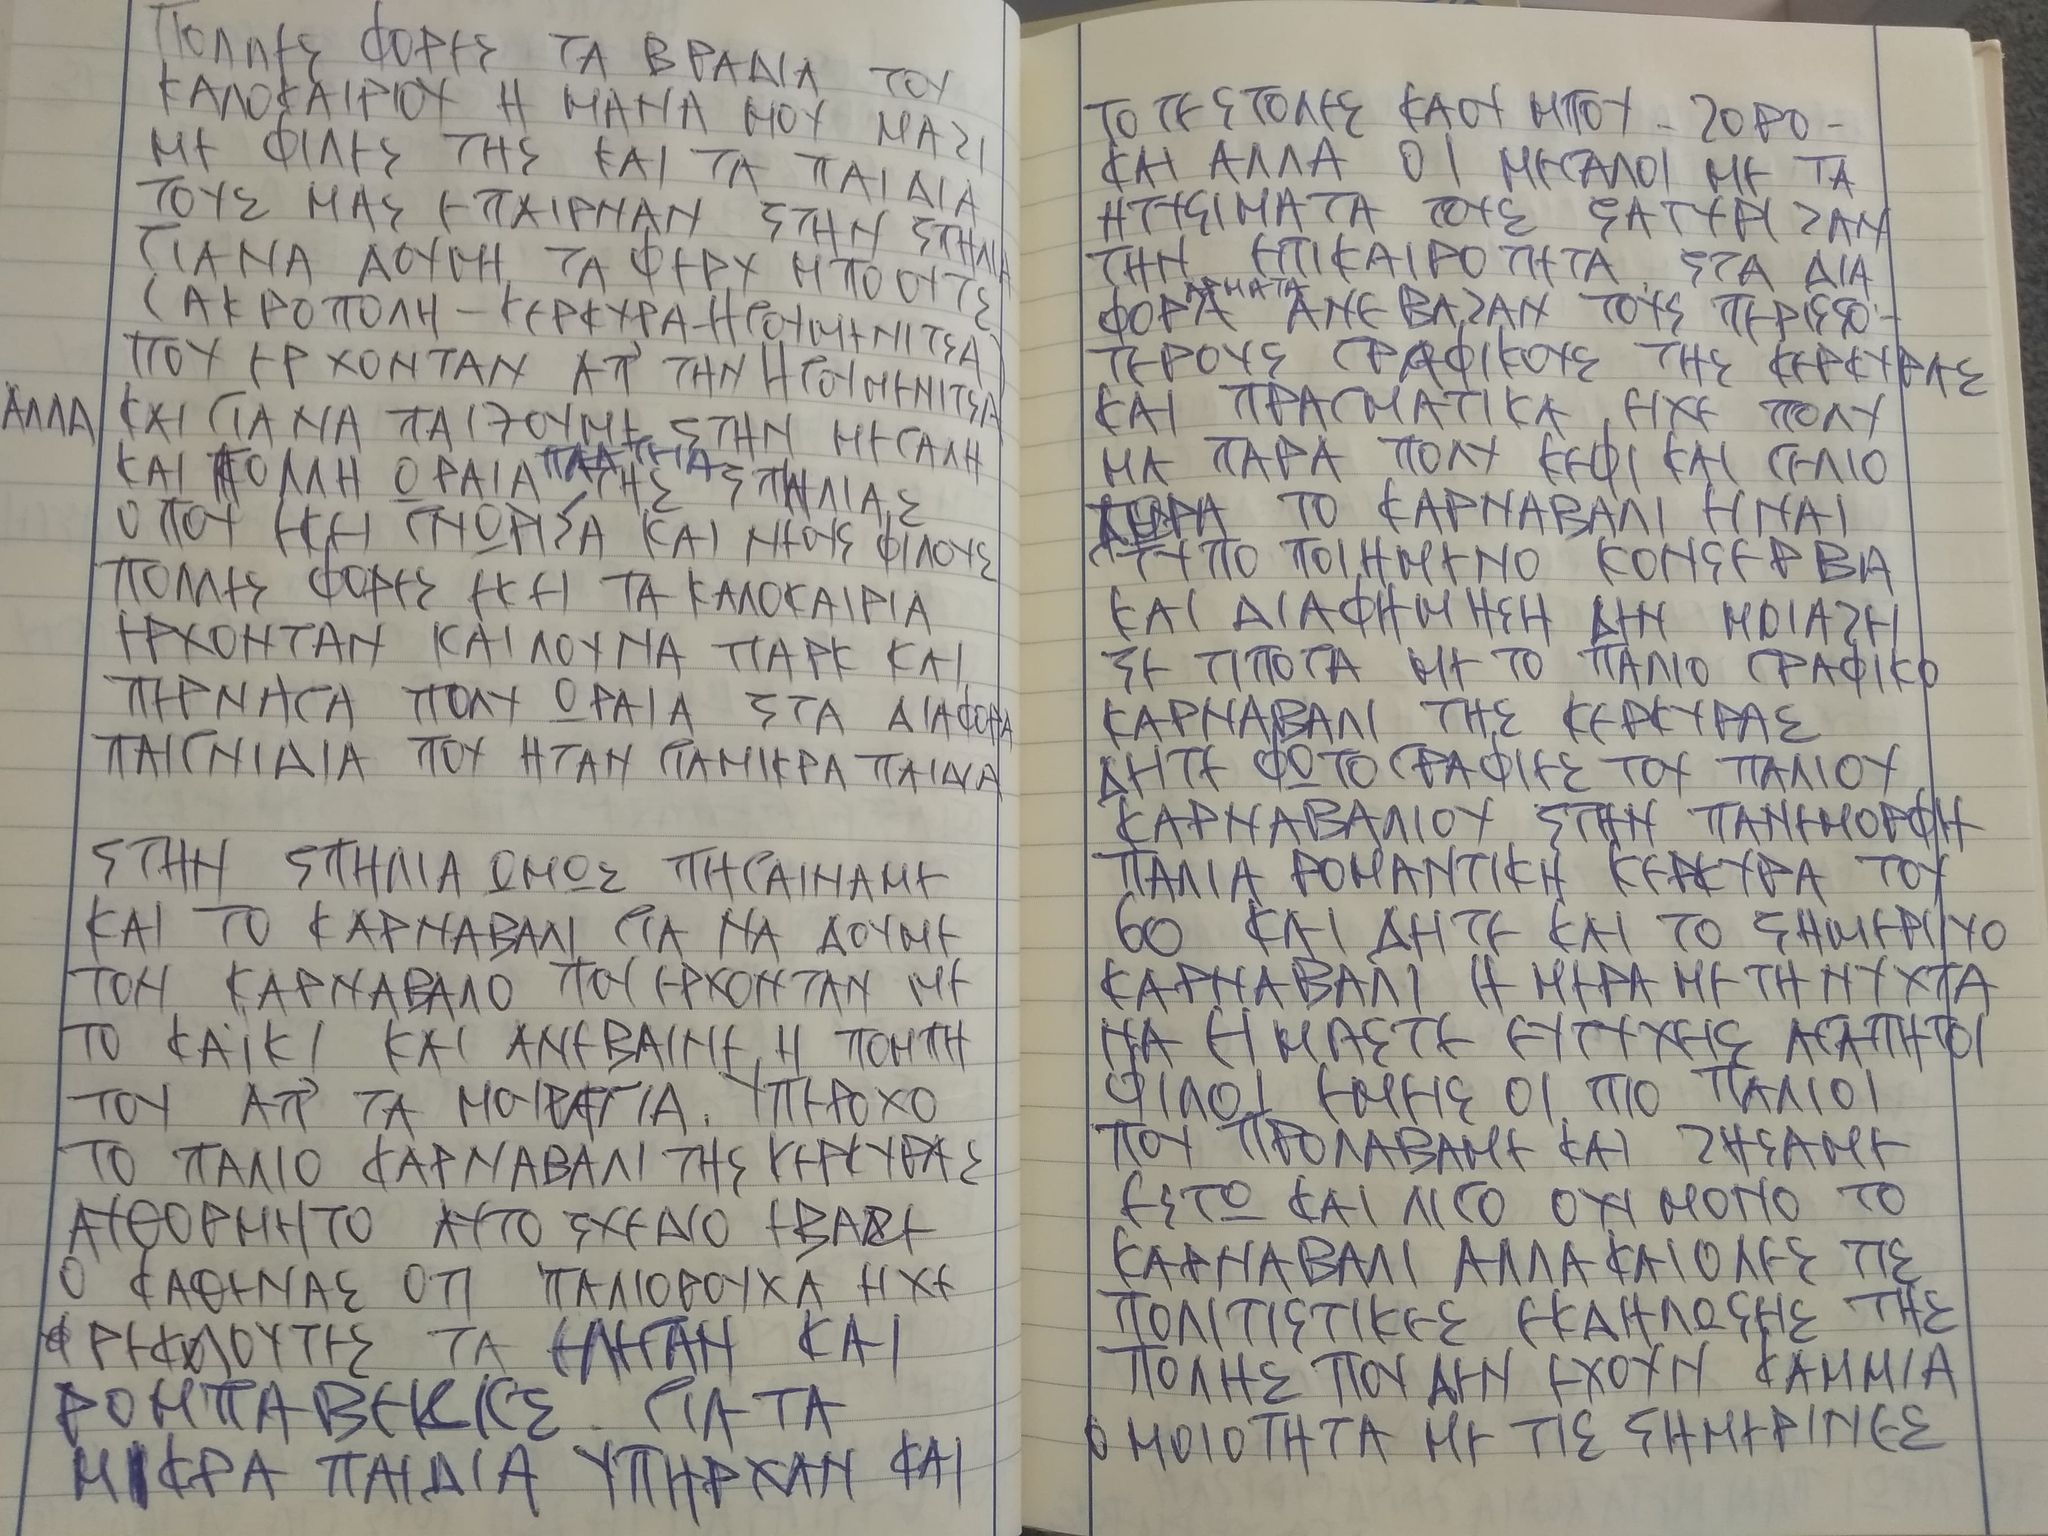 ΠΟΛΛΕΣ ΦΟΡΕΣ ΤΑ ΒΡΑΔΙΑ ΤΟΥ
ΚΑΛΟΚΑΙΡΙΟΥ Η ΜΑΝΑ ΜΟΥ ΜΑΖΙ
ΜΕ ΦΙΛΕΣ ΤΗΣ ΚΑΙ ΤΑ ΠΑΙΔΙΑ
ΤΟΥΣ ΜΑΣ ΕΠΑΙΡΝΑΝ ΣΤΗΝ ΣΠΗΛΙΑ
ΓΙΑ ΝΑ ΔΟΥΜΗ ΤΑ ΦΕΡΥ ΜΠΟΟΥΤΣ
(ΑΚΡΟΠΟΛΗ - ΚΕΡΚΥΡΑ - ΗΓΟΥΜΕΝΙΤΣΑ)
ΠΟΥ ΕΡΧΟΝΤΑΝ ΑΠ' ΤΗΝ ΗΓΟΥΜΕΝΙΤΣΑ
ΑΛΛΑ ΚΑΙ ΓΙΑ ΝΑ ΠΑΙΞΟΥΜΕ ΣΤΗΝ ΜΕΓΑΛΗ
ΚΑΙ ΠΟΛΛΗ ΩΡΑΙΑ ΠΛΑΤΗΑ ΤΗΣ ΣΠΗΛΙΑΣ
ΟΠΟΥ ΕΚΕΙ ΓΝΩΡΙΣΑ ΚΑΙ ΝΕΟΥΣ ΦΙΛΟΥΣ
ΠΟΛΛΕΣ ΦΟΡΕΣ ΕΚΕΙ ΤΑ ΚΑΛΟΚΑΙΡΙΑ
ΕΡΧΟΝΤΑΝ ΚΑΙ ΛΟΥΝΑ ΠΑΡΚ ΚΑΙ
ΠΕΡΝΑΓΑ ΠΟΛΥ ΩΡΑΙΑ ΣΤΑ ΔΙΑΦΟΡΑ
ΠΑΙΓΝΙΔΙΑ ΠΟΥ ΗΤΑΝ ΓΙΑ ΜΙΚΡΑ ΠΑΙΔΙΑ
ΣΤΗΝ ΣΠΗΛΙΑ ΩΜΩΣ ΠΗΓΑΙΝΑΜΕ
ΚΑΙ ΤΟ ΚΑΡΝΑΒΑΛΙ ΓΙΑ ΝΑ ΔΟΥΜΕ
ΤΟΝ ΚΑΡΝΑΒΑΛΟ ΠΟΥ ΕΡΧΟΝΤΑΝ ΜΕ
ΤΟ ΚΑΪΚΙ ΚΑΙ ΑΝΕΒΑΙΝΕ Η ΠΟΜΠΗ
ΤΟΥ ΑΠ' ΤΑ ΜΟΥΡΑΓΙΑ. ΥΠΕΡΟΧΟ
ΤΟ ΠΑΛΙΟ ΚΑΡΝΑΒΑΛΙ ΤΗΣ ΚΕΡΚΥΡΑΣ
ΑΥΘΟΡΜΗΤΟ ΑΥΤΟΣΧΕΔΙΟ ΕΒΑΖΕ
Ο ΚΑΘΕΝΑΣ ΟΤΙ ΠΑΛΙΟΡΟΥΧΑ ΗΧΕ
ΦΡΙΚΛΟΥΤΗΣ ΤΑ ΚΑΙ
ΡΟΜΠΑ ΒΕΚΚΕΣ ΓΙΑ ΤΑ
ΜΙΚΡΑ ΠΑΙΔΙΑ ΥΠΗΡΧΑΝ ΚΑΙ
ΤΟΤΕ ΣΤΟΛΕΣ ΚΑΟΥΜΠΟΥ - ΖΟΡΟ -
ΚΑΙ ΑΛΛΑ ΟΙ ΜΕΓΑΛΟΙ ΜΕ ΤΑ
ΝΤΥΣΙΜΑΤΑ ΤΟΥΣ ΣΑΤΥΡΙΖΑΝ
ΤΗΝ ΕΠΙΚΑΙΡΟΤΗΤΑ ΣΤΑ ΔΙΑ
ΦΟΡΑ ΑΡΜΑΤΑ ΑΝΕΒΑΖΑΝ ΤΟΥΣ ΠΕΡΙΣΣΟ-
ΤΕΡΟΥΣ ΓΡΑΦΙΚΟΥΣ ΤΗΣ ΚΕΡΚΥΡΑΣ
ΚΑΙ ΠΡΑΓΜΑΤΙΚΑ ΕΙΧΕ ΠΟΛΥ
ΜΑ ΠΑΡΑ ΠΟΛΥ ΚΕΦΙ ΚΑΙ ΓΕΛΙΟ
ΤΩΡΑ ΤΟ ΚΑΡΝΑΒΑΛΙ ΗΝΑΙ
ΤΥΠΟΠΟΙΗΜΕΝΟ ΚΟΝΣΕΡΒΑ
ΚΑΙ ΔΙΑΦΗΜΗΣΗ ΔΕΝ ΜΟΙΑΖΗ
ΣΕ ΤΙΠΟΤΑ ΜΕ ΤΟ ΠΑΛΙΟ ΓΡΑΦΙΚΟ
ΚΑΡΝΑΒΑΛΙ ΤΗΣ ΚΕΡΚΥΡΑΣ
ΔΗΤΕ ΦΩΤΟΓΡΑΦΙΕΣ ΤΟΥ ΠΑΛΙΟΥ
ΚΑΡΝΑΒΑΛΙΟΥ ΣΤΗΝ ΠΑΝΕΜΟΡΦΗ
ΠΑΛΙΑ ΡΟΜΑΝΤΙΚΗ ΚΕΡΚΥΡΑ ΤΟΥ
60 ΚΑΙ ΔΗΤΕ ΚΑΙ ΤΟ ΣΗΜΕΡΙΝΟ
ΚΑΡΝΑΒΑΛΙ Η ΜΕΡΑ ΜΕ ΤΗ ΝΥΧΤΑ
ΝΑ ΕΙΜΑΣΤΕ ΕΥΤΥΧΕΙΣ ΑΓΑΠΗΤΟΙ
ΦΙΛΟΙ ΕΜΕΙΣ ΟΙ ΠΙΟ ΠΑΛΙΟΙ
ΠΟΥ ΠΡΟΛΑΒΑΜΕ ΚΑΙ ΖΗΣΑΜΕ
ΕΣΤΩ ΚΑΙ ΛΙΓΟ ΟΧΙ ΜΟΝΟ ΤΟ
ΚΑΡΝΑΒΑΛΙ ΑΛΛΑ ΚΑΙ ΟΛΕΣ ΤΙΣ
ΠΟΛΙΤΙΣΤΙΚΕΣ ΕΚΔΗΛΩΣΗΣ ΤΗΣ
ΠΟΛΗΣ ΠΟΥ ΔΕΝ ΕΧΟΥΝ ΚΑΜΜΙΑ
ΟΜΟΙΟΤΗΤΑ ΜΕ ΤΙΣ ΣΗΜΕΡΙΝΕΣ